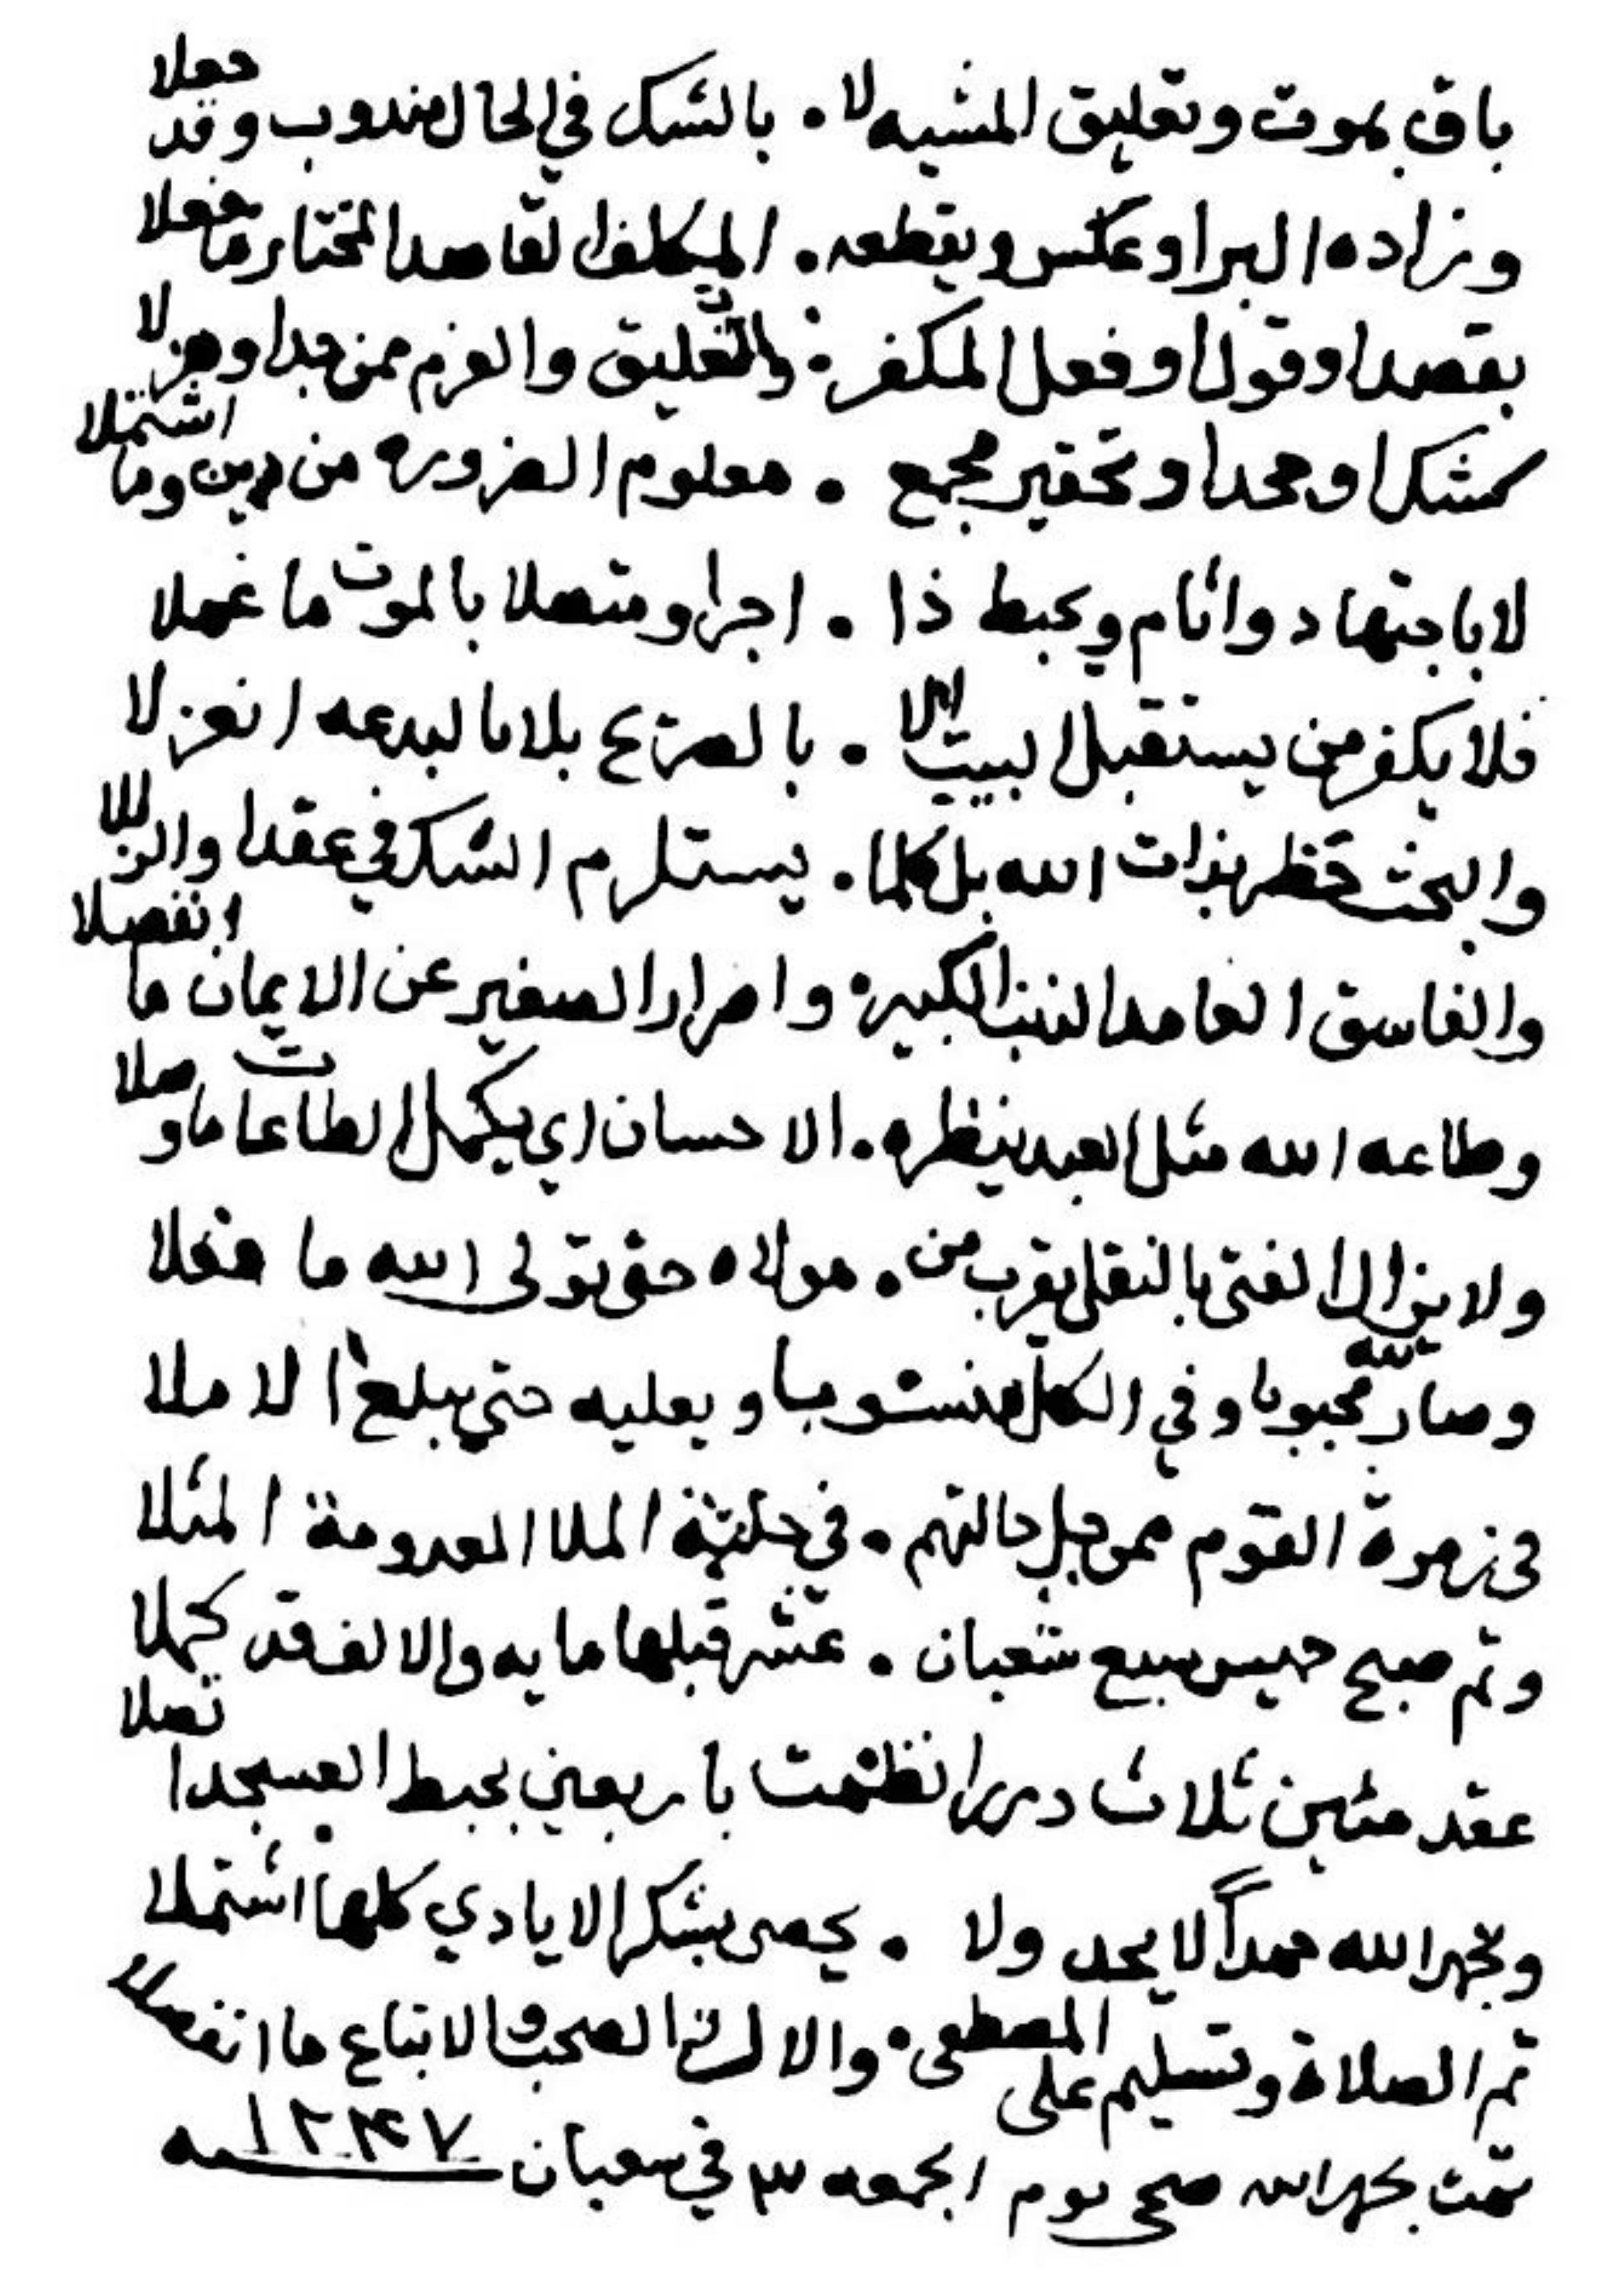 باق بموت وتعليق المشيه لا . بالشك في الحال مندوب وقد جعلا
وزاده البر او عكس ويقطعه . المكلف لقاصد المختار ما فعلا
بقصد او قول او فعل المكفر . والتعليق والعزم ممن جد او هزلا
كمشك او جحد او تحقير مجمع . معلوم الضروره من دين وما اشتملا
لا باجتهاد واثام ويحبط ذا . اجرا ومتصلا بالموت ما عملا
فلا يكفر من يستقبل البيت الا . بالصريح بلا ما لبدعه انعزلا
والبحث حظر بذات الله بل كلما . يستلزم الشك في عقد والزللا
والفاسق العامد الذنب الكبير . واصرار الصغير عن الايمان ما انفصلا
وطاعه الله مثل العبد ينظره . الاحسان اي يكمل الطاعات ما وصلا
ولا يزال الفتى بالنفل يقرب من . مولاه حتى تولى الله ما فعلا
وصار لله محبوبا وفي الكل منسوبا ويعليه حتى يبلغ الاملا
في زمرة القوم ممن جل حالتهم . في حلية الملا المعدومة المثلا
وتم صبح خميس سبع شعبان . عشر قبلها مايه والالف قد كملا
عقد مئين ثلاث دررا نظمت باربعين بخيط العسجد اتصلا
وبحهد الله حمداً لا يحد ولا . يحصى بشكر الايادي كلها اشتملا
ثم الصلاة وتسليم على المصطفى . والال ثم الصحب والاتباع ما انفصلا
تمت بحمد الله صحى يوم الجمعه ٣ في سعبان ١٢٣٧ سه